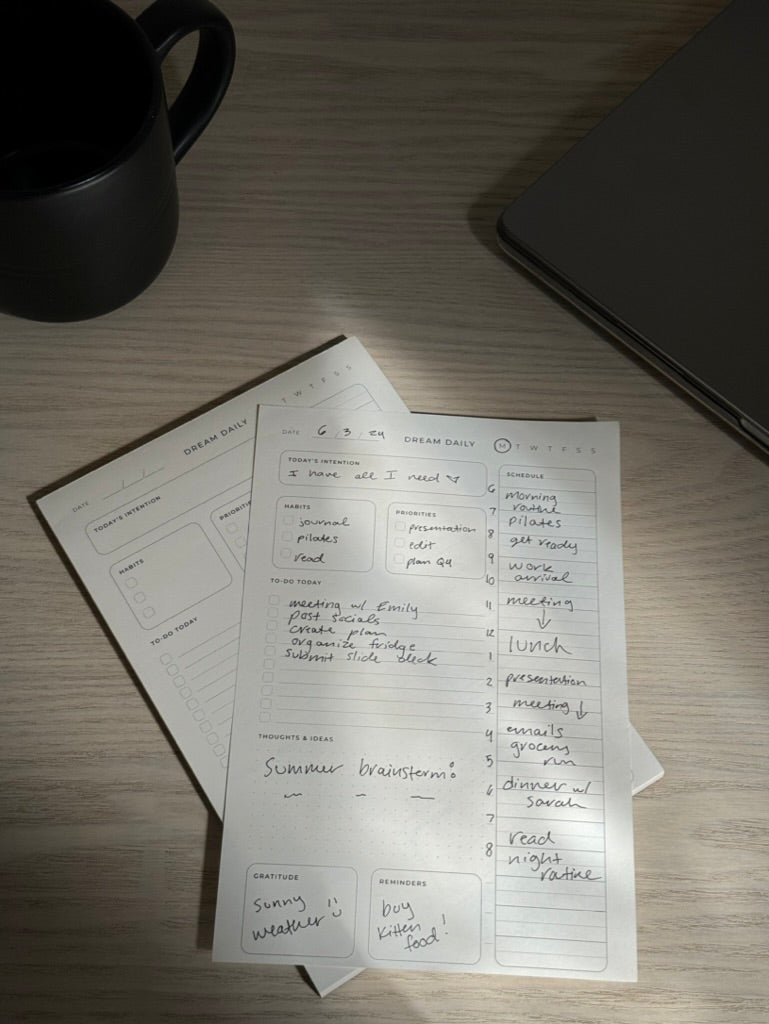 DATE 6 / 3 / 24 DREAM DAILY M T W T F S S
TODAY'S INTENTION
I have all I need
HABITS
journal
pilates
read
PRIORITIES
presentation
edit
plan Q4
TO-DO TODAY
meeting w/ Emily
post socials
create plan
organize fridge
submit slide deck
THOUGHTS & IDEAS
Summer brainstorm:
GRATITUDE
sunny
weather
REMINDERS
buy
kitten
food!
SCHEDULE
6
morning
7
routine
pilates
8
get ready
9
work
10
arrival
11
meeting
12
lunch
1
2
presentation
3
meeting
4
emails
grocery
5
run
6
dinner w/
sarah
7
read
8
night
routine
DATE / / DREAM DAILY T W T F S S
TODAY'S INTENTION
HABITS
PRIORITIE
TO-DO TODAY